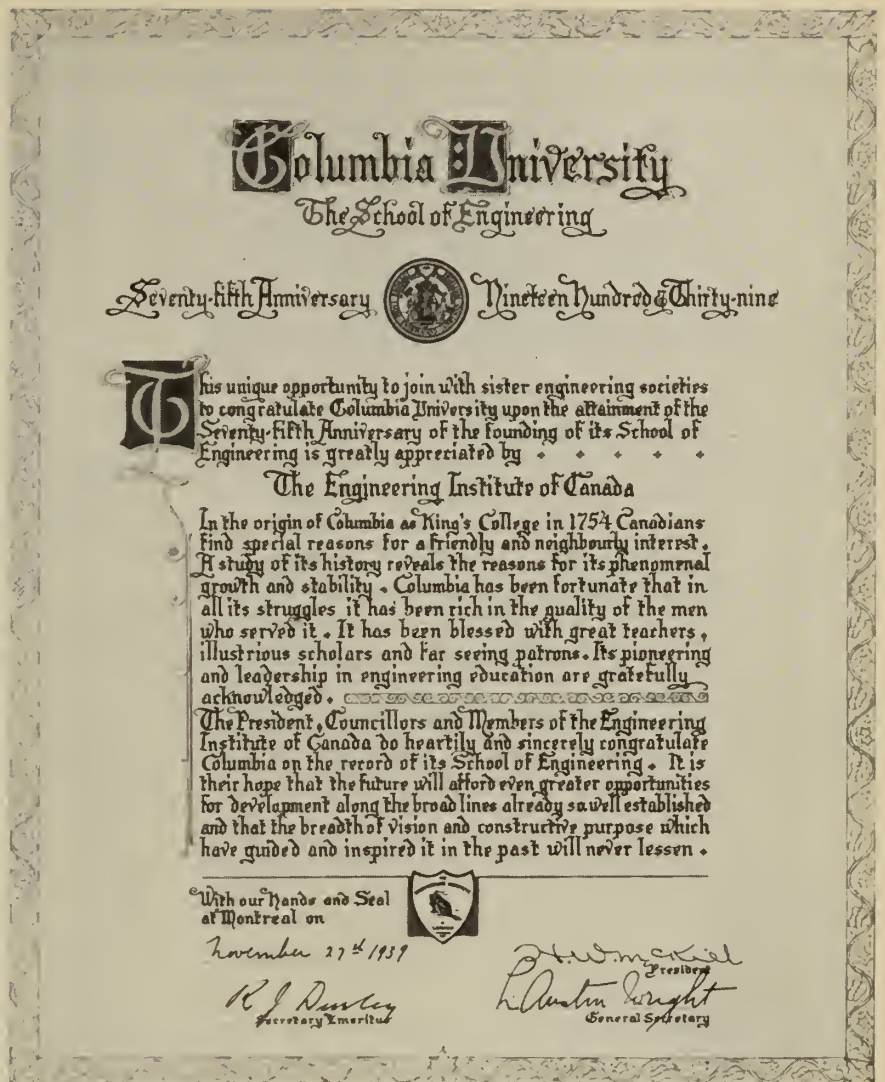 Columbia University
The School of Engineering
Seventy-fifth Anniversary Nineteen Hundred & Thirty-nine
This unique opportunity to join with sister engineering societies
to congratulate Columbia University upon the attainment of the
Seventy-fifth Anniversary of the founding of its School of
Engineering is greatly appreciated by
The Engineering Institute of Canada
In the origin of Columbia as King's College in 1754 Canadians
find special reasons for a friendly and neighbourly interest.
A study of its history reveals the reasons for its phenomenal
growth and stability. Columbia has been fortunate that in
all its struggles it has been rich in the quality of the men
who served it. It has been blessed with great teachers,
illustrious scholars and far seeing patrons. Its pioneering
and leadership in engineering education are gratefully
acknowledged.
The President, Councillors and Members of the Engineering
Institute of Canada do heartily and sincerely congratulate
Columbia on the record of its School of Engineering. It is
their hope that the future will afford even greater opportunities
for development along the broad lines already so well established
and that the breadth of vision and constructive purpose which
have guided and inspired it in the past will never lessen.
With our Hands and Seal
at Montreal on
November 27th 1939
H.W. McKiel
President
R J Durley
Secretary Emeritus
L. Austin Wright
General Secretary